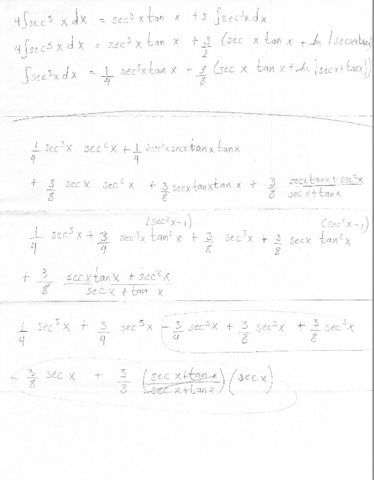 4∫sec⁵x dx = sec³x tan x + 3 ∫sec³x dx
4∫sec⁵x dx = sec³x tan x + 3/2 (sec x tan x + ln |secx+tanx|
∫sec⁵x dx = 1/4 sec³x tan x + 3/8 (sec x tan x + ln |secx+tanx|)
1/4 sec³x sec²x + 1/4 3sec²x secx tanx tanx
+ 3/8 secx sec²x + 3/8 secx tanx tan x + 3/8 (secx tanx + sec²x)/(secx + tanx)
(sec²x-1) (sec²x-1)
1/4 sec⁵x + 3/4 sec³x tan²x + 3/8 sec³x + 3/8 secx tan²x
+ 3/8 (secx tanx + sec²x)/(secx + tan x)
1/4 sec⁵x + 3/4 sec⁵x - 3/4 sec³x + 3/8 sec³x + 3/8 sec³x
- 3/8 sec x + 3/8 ((sec x + tan x)/(sec x + tan x)) (sec x)